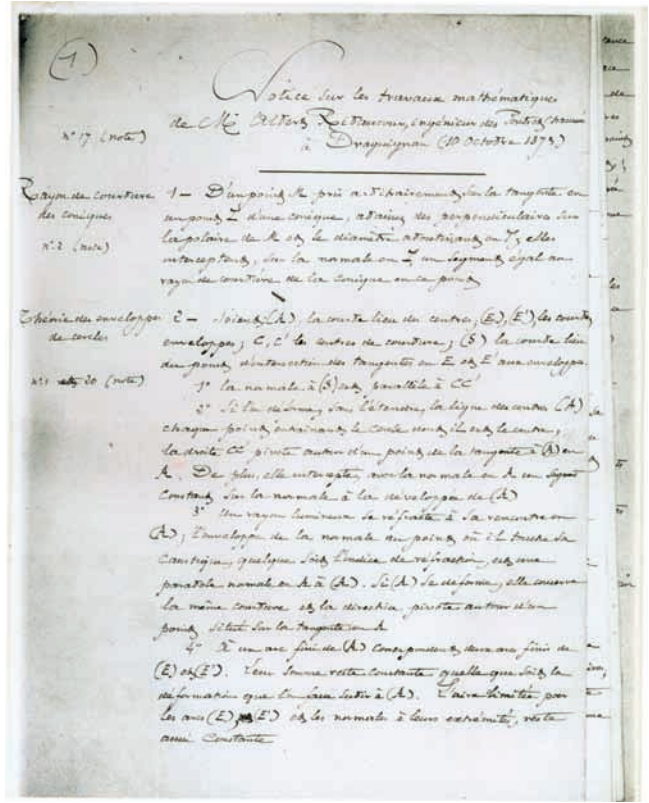 (1)
Notice sur les travaux mathématiques
de M. Albert Ribaucour, ingénieur des Ponts et Chaussées
à Draguignan (10 Octobre 1873)
n° 17 (note)
Rayon de courbure
des coniques
n° 2 (note)
1 — D'un point M pris arbitrairement sur la tangente en
un point I d'une conique, abaissez des perpendiculaires sur
la polaire de M et le diamètre aboutissant en I, elles
interceptent, sur la normale en I, un segment égal au
rayon de courbure de la conique en ce point
Théorie des enveloppes
de cercles
n° 1 20 (note)
2 — Soient (A), la courbe lieu des centres, (E), (E'), les courbes
enveloppes; C, C' les centres de courbure; (S) la courbe lieu
du point d'intersection des tangentes en E et E' aux enveloppes.
1° la normale à (S) est parallèle à CC'
2° Si l'on déforme, sans l'étendre, la ligne des centres (A)
chaque point entraînant le cercle dont il est le centre,
la droite CC' pivote autour d'un point de la tangente à (A) en
A. De plus, elle intercepte, avec la normale en A un segment
constant sur la normale à la développée de (A)
3° Un rayon lumineux se réfracte à sa rencontre en
(A); l'enveloppe de la normale au point où il touche sa
caustique, quelque soit l'indice de réfraction, est une
parabole normale en A à (A). Si (A) se déforme, elle conserve
la même courbure et la direction pivote autour d'un
point situé sur la tangente en A
4° À un arc fini de (A) correspondent deux arcs finis de
(E) et (E'). Leur somme reste constante quelle que soit la
déformation que l'on fasse subir à (A). L'aire limitée par
les arcs (E), (E') et les normales à leurs extrémités, reste
aussi constante